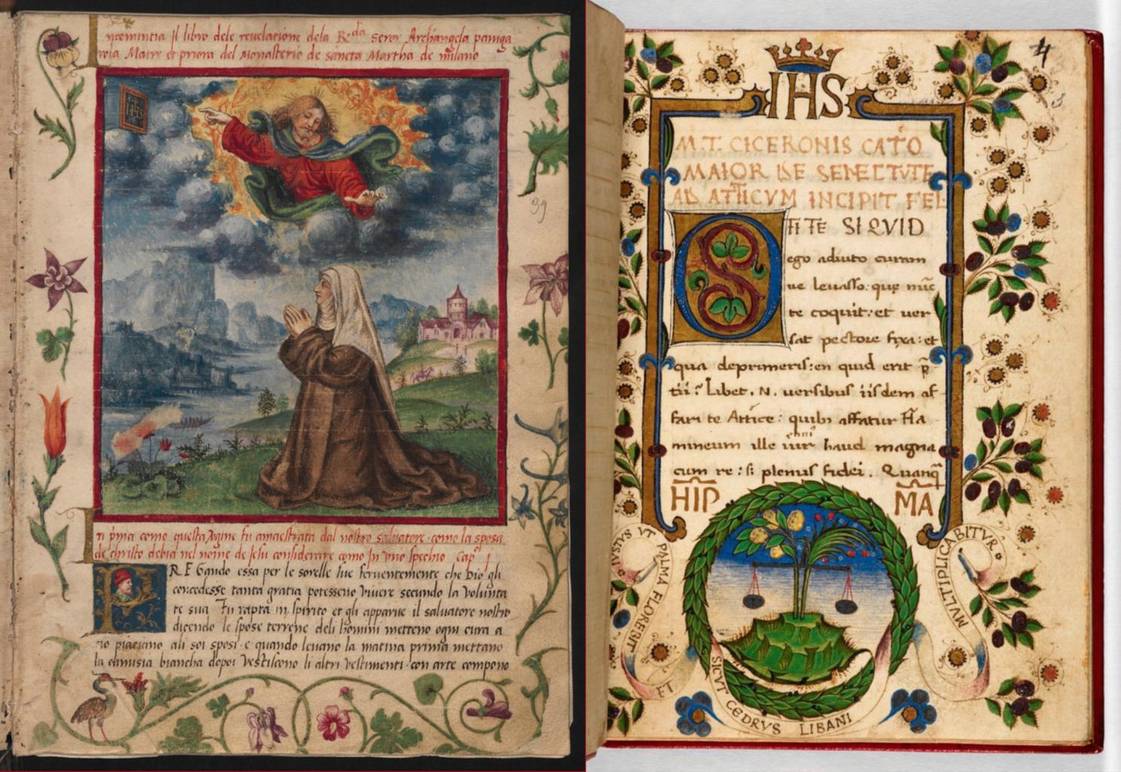 Incomintia il libro dele revelatione dela R.da Seror Archangela paniga
rola Matre et priora del Monasterio de sancta Martha de milano
IHS
99
In prima como questa
fu amaestrata dal nostro salvatore como la sposa
de christo debia nel nome de Jesu considerare como in uno spechio Cap. I
PREGando essa per le sorelle sue ferventemente che Dio gli
concedesse tanta gratia potesseno vivere secundo la volunta
te sua fu rapta in spirito et gli apparve il salvatore nostro
dicendo le spose terrene deli homini metteno ogni cura a
piacimo ali soi sposi e quando levano la matina prima mettano
la camisia biancha depoi vestiscono li altri vestimenti con arte compono
4
IHS
M.T. CICERONIS CATO
MAIOR DE SENECTUTE
AD ATTICVM INCIPIT FEL
O TITE SI QVID
ego adiuto curam
ve levasso. que nunc
te coquit: et ver
sat pectore fixa: et
qua deprimeris: en quid erit p
tii? Libet. N. versibus iisdem af
fari te Attice: quibus affatur Fla
mineum ille vir haud magna
cum re: si plenus fidei. Quanq
HIP MA
IVSTVS VT PALMA FLOREBIT
ET SICVT CEDRVS LIBANI
MVLTIPLICABITVR